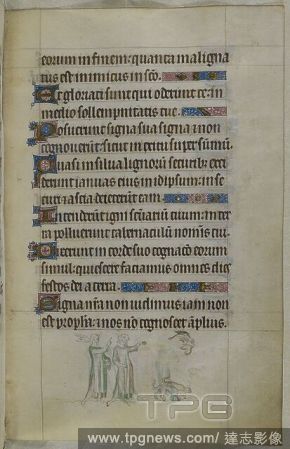 eorum in finem: quanta maligna
tus est inimicus in sc̄o.
Et gloriati sunt qui oderunt te: in
medio sollempnitatis tue.
Posuerunt signa sua signa: 7 non
cognouerunt: sicut in exitu super sūmū.
Quasi in silua lignorū securib; exci
derunt ianuas eius in idipsum: in se
curi 7 ascia deiecerunt eam.
Incenderūt igni scūariū tuum: in ter
ra polluerunt tabernaculū nominis tui.
Dixerunt in corde suo cognacō eorum
simul: quiescere faciamus omnes dies
festos dei a terra.
Signa nr̄a non uidimus iam non
est propha: 7 nos nō cognoscet āplius.
TPG
www.tpgnews.com/ 達志影像